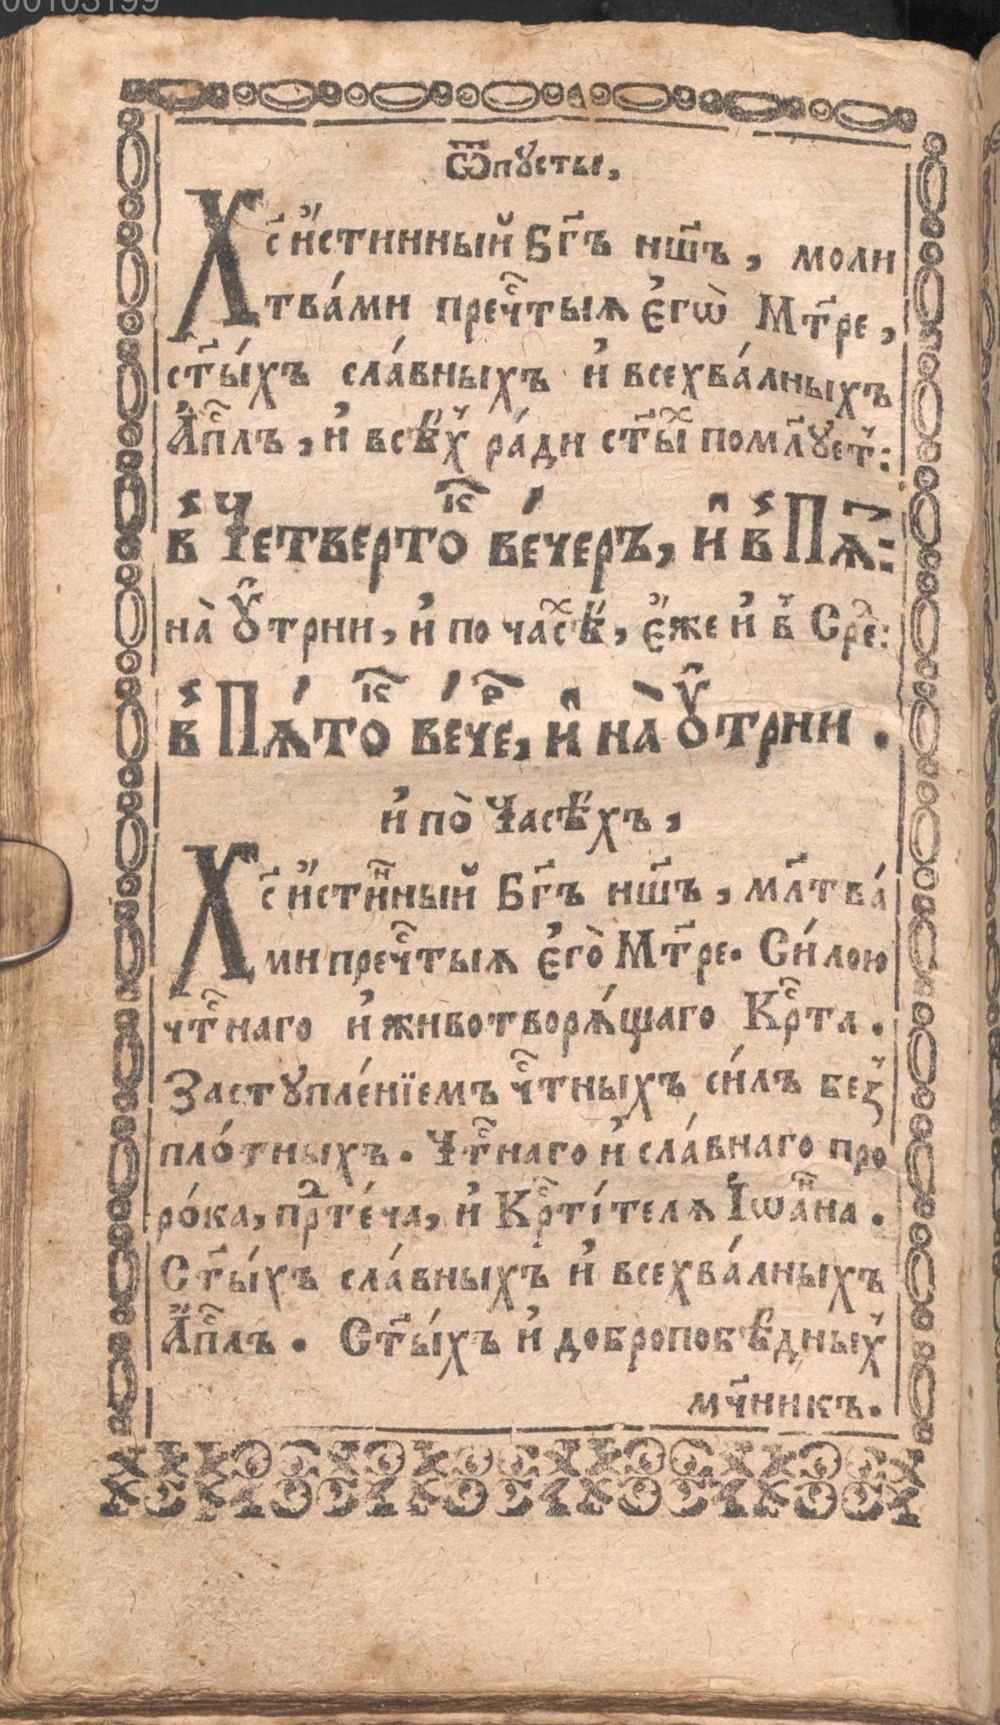 00103199
Ѿпустье,
Хс҃ и҆́стинный Бг҃ъ нш҃ъ, моли
тва́ми пречⷭ҇тыѧ є҆гѡ̀ Мт҃ре,
ст҃ы́хъ сла́вныхъ и҆ всехва́лныхъ
А҆пⷭ҇лъ, и҆ всѣ́х̾ ра́ди ст҃ыⷯ помл҃ует̾:
в̾ Четвертоⷦ ве́черъ, и҆ в̾ Пѧ҃:
на̀ Оу҆́трни, и҆ по часⷯѣ, є҆́же и҆ в̾ Срⷣе:
в̾ Пѧ́тоⷦ ве́чеⷬ, и҆ на̀ Оу҆́трни.
и҆ по̀ Часѣ́хъ,
Хс҃ и҆́стиⷩный Бг҃ъ нш҃ъ, мл҃тва́
ми пречⷭ҇тыѧ є҆го̀ Мт҃ре. Си́лою
чтⷭ҇наго и҆ животворѧ́щаго Крⷭ҇та.
Заступле́нїемъ чⷭ҇тныхъ си́лъ без̾
пло́тныхъ. Чтⷭ҇наго и҆ сла́внаго про
ро́ка, прⷣте́ча, и҆ Крⷭ҇ті́телѧ І҆ѡа́ⷩна.
Ст҃ы́хъ сла́вныхъ и҆ всехва́лныхъ
А҆пⷭ҇лъ. Ст҃ы́хъ и҆ добропобѣ́дных̾
мч҃никъ.